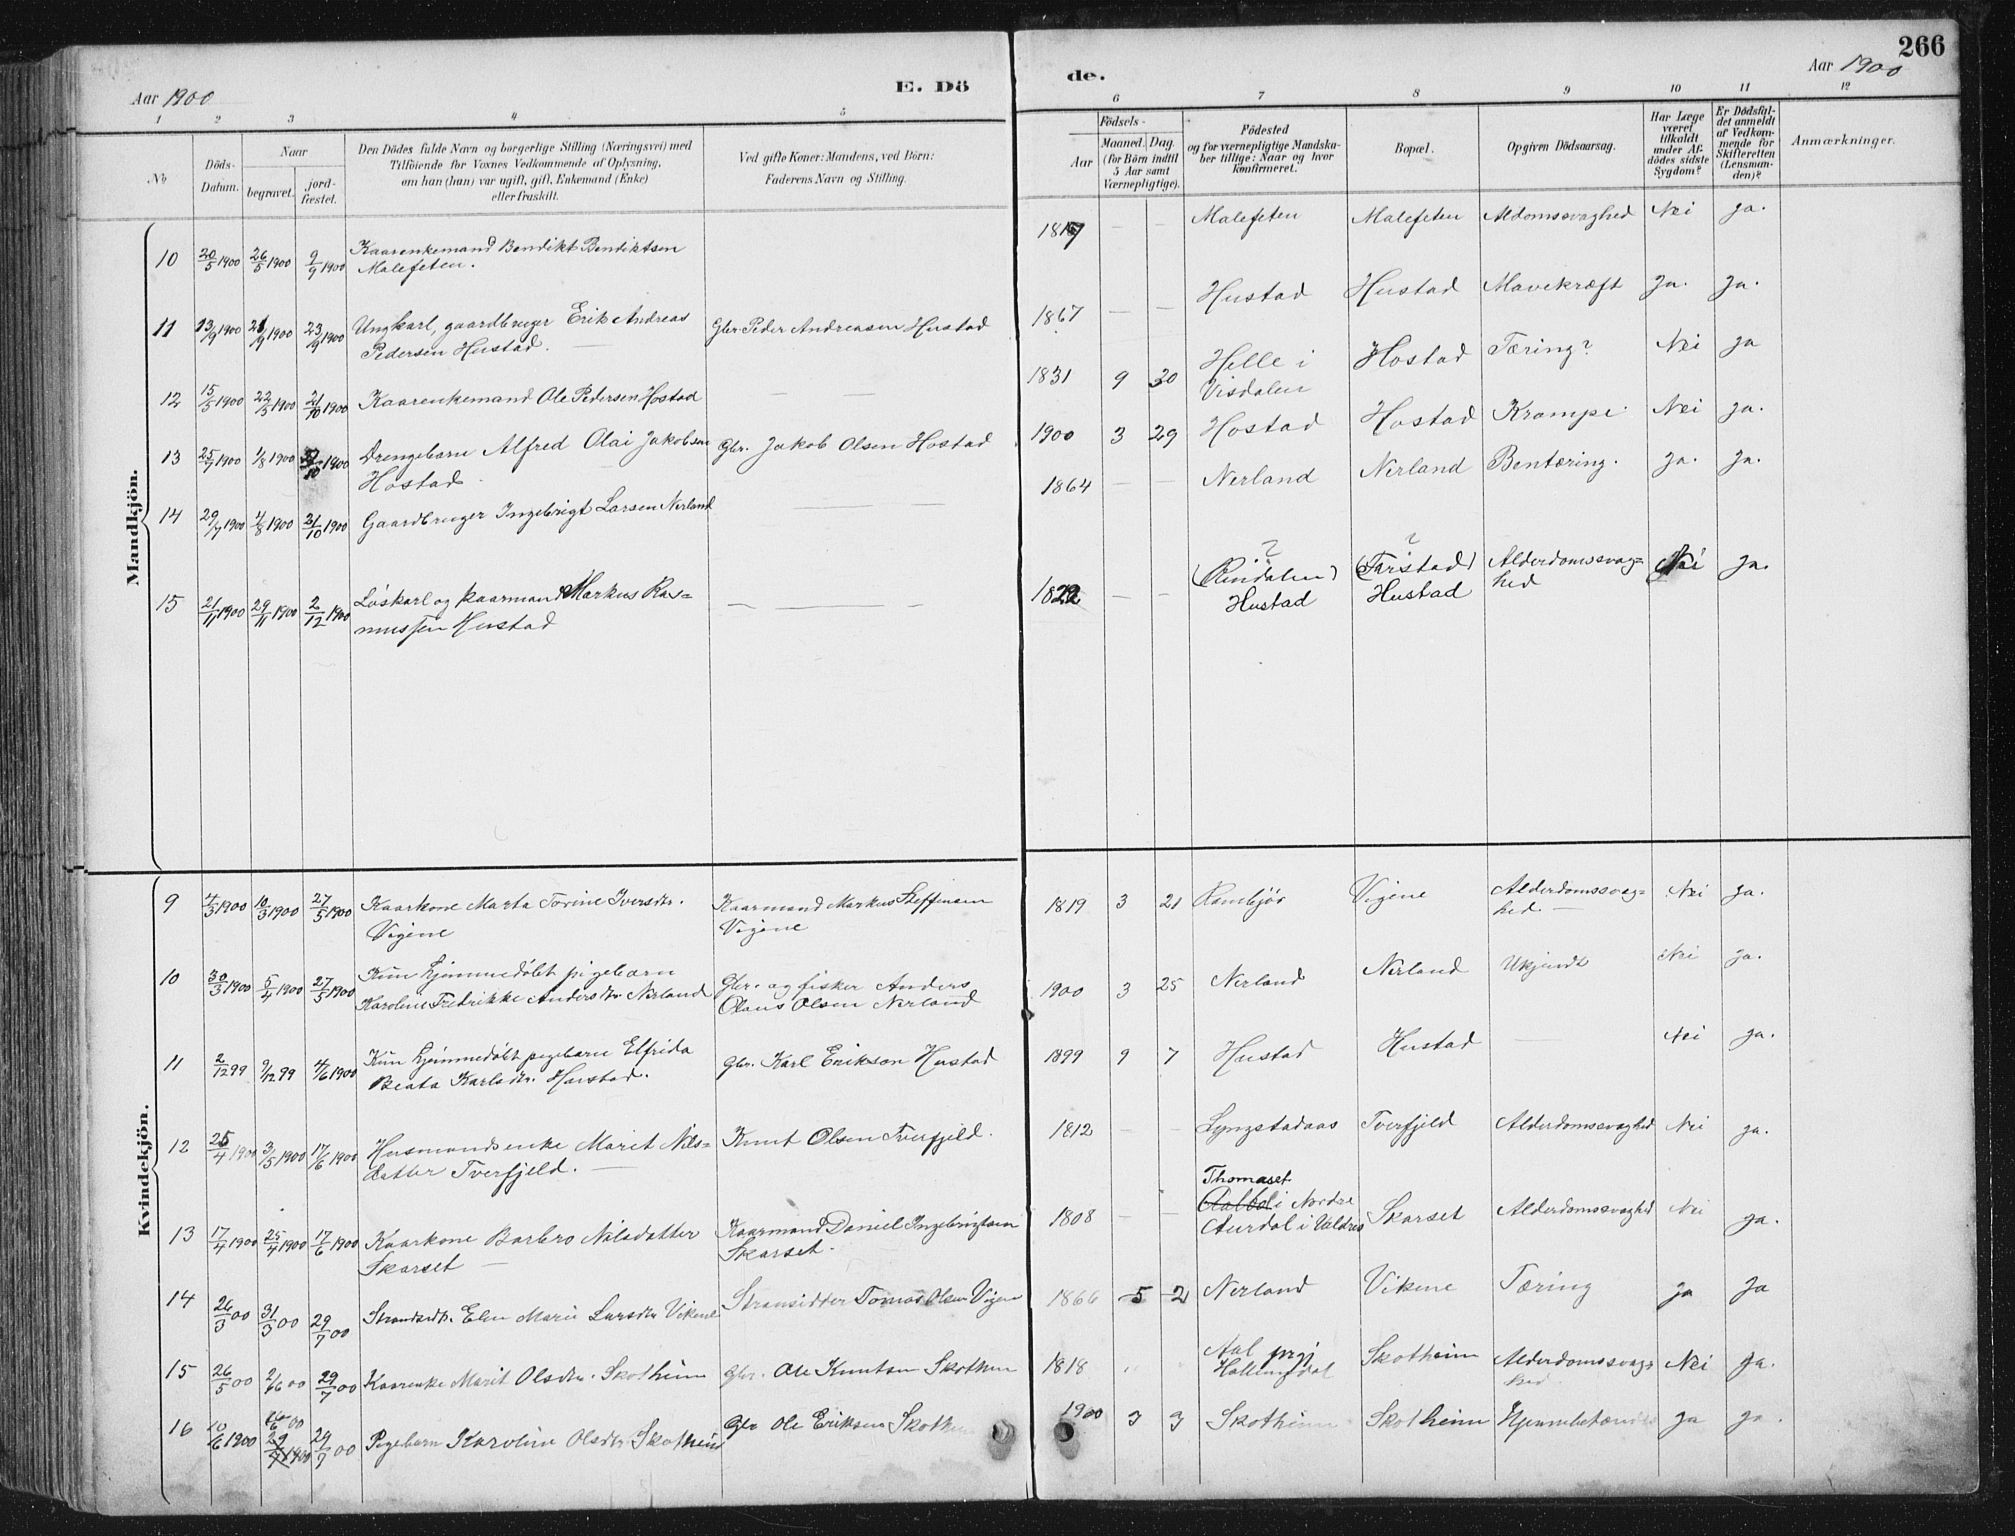 266
Aar 1900
E. Dö
de.
Aar 1900
1 2 3 4 5 6 7 8 9 10 11 12
No
Döds-
Datum.
Naar
begravet.
jord-
fæstet.
Den Dödes fulde Navn og borgerlige Stilling (Næringsvei) med
Tilföiende for Voxnes Vedkommende af Oplysning,
om han (hun) var ugift, gift, Enkemand (Enke)
eller fraskilt.
Ved gifte Koner: Mandens, ved Börn:
Faderens Navn og Stilling.
Födsels-
Aar
Maaned. Dag.
(for Börn indtil
5 Aar samt
Værnepligtige).
Födested
og for værnepligtige Mandska-
ber tillige: Naar og hvor
konfirmeret.
Bopæl.
Opgiven Dödsaarsag.
Har Læge
været
tilkaldt
under Af-
dödes sidste
Sygdom?
Er Dödsfal-
det anmeldt
af Vedkom-
mende for
Skifteretten
(Lensman-
den)?
Anmærkninger.
Mandkjön.
10 20/5 1900 26/5 1900 9/9 1900 Kaarenkemand Bendikt Bendiktsen
Malefeten.
— — Malefeten Malefeten Aldomssvaghed Nei ja.
11 13/9 1900 21/9 1900 23/9 1900 Ungkarl, gaardbruger Erik Andreas
Pedersen Hustad. Gbr. Peder Andreasen Hustad
1867 — — Hustad Hustad Mavekræft ja. ja.
12 15/5 1900 22/5 1900 21/10 1900 Kaarenkemand Ole Pedersen Hostad — —
1831 9 30 Helle i
Visdalen Hostad Tæring? Nei ja
13 25/7 1900 1/8 1900 1900 Drengebarn Alfred Olai Jakobsen
Hostad Gbr. Jakob Olsen Hostad
1900 3 29 Hostad Hostad Krampe. Nei ja.
14 29/7 1900 4/8 1900 31/10 1900 Gaardbruger Ingebrigt Larsen Nerland — —
1864 — — Nerland Nerland Bentæring. ja. ja.
15 21/11 1900 29/11 1900 2/12 1900 Løskarl og kaarmand Markus Ras=
mussen Hustad — — —
1822 — — ? (Rindalen)
Hustad ? (Farstad)
Hustad Alderdomssvag=
hed Nei ja.
Kvindekjön.
9 4/3 1900 10/3 1900 27/5 1900 Kaarkone Marta Torine Iversdtr.
Vigene Kaarmand Markus Steffensen
Vigene
1819 3 21 Rambjör Vigene Alderdomssvag=
hed. — Nei ja.
10 30/3 1900 5/4 1900 27/5 1900 Kun hjemmedöbt pigebarn
Karoline Fredrikke Andersdtr. Nerland Gbr. og fisker Anders
Olaus Olsen Nerland
1900 3 25 Nerland Nerland Ukjendt Nei ja.
11 2/12 99 9/12 99 4/6 1900 Kun hjemmedöbt pigebarn Elfrida
Beata Karlsdtr. Hustad. Gbr. Karl Erikson Hustad
1899 9 7 Hustad Hustad — Nei ja.
12 25/4 1900 3/5 1900 17/6 1900 Husmandsenke Marit Nils=
datter Tverfjeld. — Knut Olsen Tverfjeld.
1812 — — Lyngstadaas Tverfjeld Alderdomssvaghed Nei ja.
13 17/4 1900 25/4 1900 17/6 1900 Kaarkone Barbro Nilsdatter
Skarset — Kaarmand Daniel Ingebrigtsen
Skarset.
1808 — — Thomaset
i Nordre
Aurdal i Valdres Skarset Alderdomssvaghed Nei ja.
14 26/3 00 31/3 00 29/7 00 Strandsdtr. Elen Marie Larsdtr Vikene Stransidder Tomas Olsen Vigene
1866 5 2 Nerland Vikene Tæring ja ja
15 26/5 00 2/6 00 29/7 00 Kaarenke Marit Olsdtr. Skotheim Gbr. Ole Knutsen Skotheim
1818 Aal prgj
Hallingdal Skotheim Alderdomssvag=
hed Nei ja.
16 10/6 1900 16/6 00 29/7 00 Pigebarn Karoline Olsdtr. Skotheim Gbr Ole Eriksen Skotheim
1900 3 3 Skotheim Skotheim Hjernebetændelse ja ja.